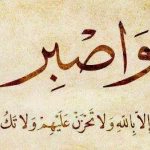 وَاصْبِر
إِلاَّ بِاللّهِ وَلاَ تَحْزَنْ عَلَيْهِمْ وَلاَ تَكُ